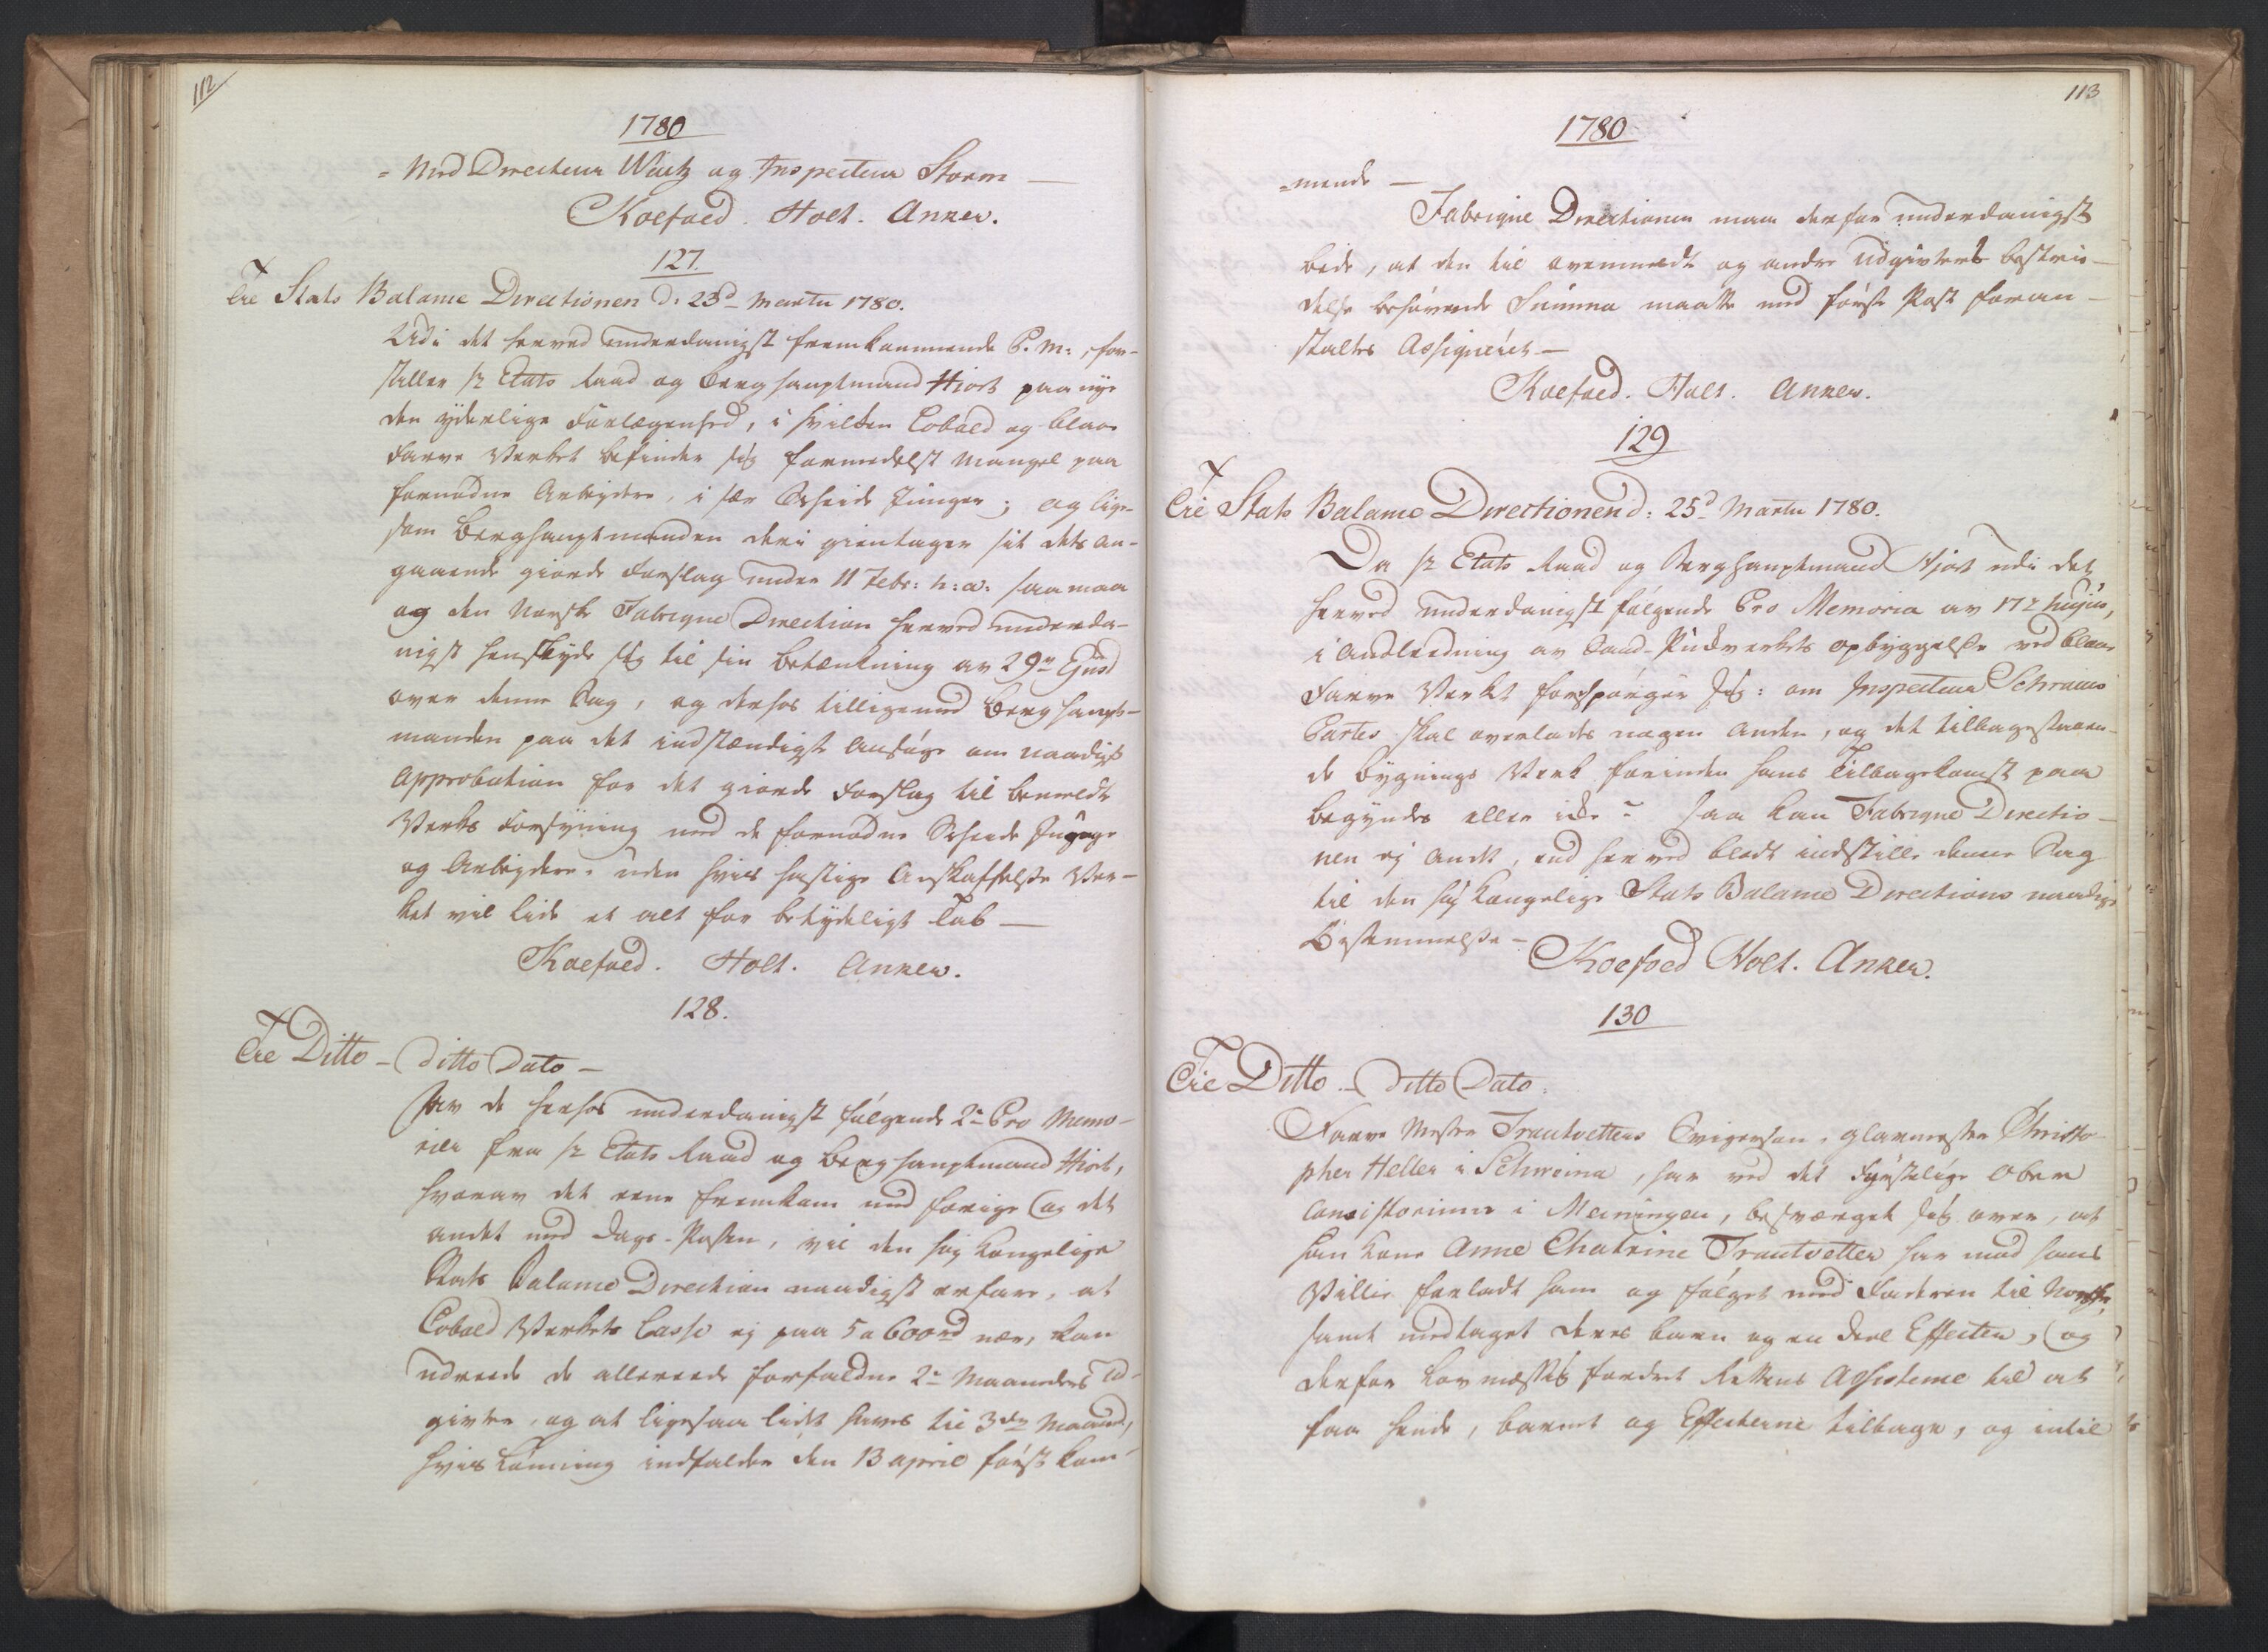 112
1780
- Med Directeur Wintz og Inspecteur Storm —
Koefoed. Holt. Anker.
127.
Til Stats Balance Directionen d: 23d Martii 1780.
Udi det herved underdanigst fremkommende P. M:, fore-
stiller Hr Etats Raad og Berghauptmand Hiort paa nye
den yderlige Forlægenhed, i hvilken Cobold og Blaae
Farve Verket befinder sig formedelst Mangel paa
fornødne Arbeydere, i sær Scheide Junger; og lige-
som Berghauptmanden deri gientager sit dets an-
gaaende giorde Forslag under 11 Febr: h: a: saa maa
og den Norske Fabrique Direction herved underda-
nigst henskyde sig til sin Betænkning av 29de Ejusd
over denne Sag, og derhos tilligemed Berghaupt-
manden paa det indstændigste ansøge om naadigst
Approbation for det giorde Forslag til bemeldte
Verks Forsyning med de fornødne Scheide Junger
og Arbeydere, uden hvis hastige Anskaffelse Ver-
ket vil lide et alt for betydeligt Tab —
Koefoed. Holt. Anker.
128.
Til Ditto - ditto Dato —
Av de herhos underdanigst følgende 2de Pro Memo-
rier fra Hr Etats Raad og Berghauptmand Hiort,
hvorav det eene fremkom med forrige og det
andet med Dags-Posten, vil den høy Kongelige
Stats Balance Direction naadigst erfare, at
Cobold Verkets Casse ej paa 5 a 600 rd nær, kan
udreede de allereede forfaldne 2de Maaneders Ud-
givter, og at ligesaa lidt haves til 3die Maaned,
hvis Lønning indfalder den 13 April først kom-
113
1780
-mende —
Fabrique Directionen maa derfor underdanigst
bede, at den til ovenmeldte og andre Udgivters bestrii-
delse behøvende Summa maatte med første Post foran-
staltes Assigneret —
Koefoed. Holt. Anker.
129
Til Stats Balance Directionen d: 25d Martii 1780.
Da Hr Etats Raad og Berghauptmand Hjort udi det
herved underdanigst følgende Pro Memoria av 17de hujus,
i Andledning av Sand-Pukverkets Opbyggelse ved Blaae
Farve Verket forespørger sig: om Inspecteur Schraus
Partes skal overlades nogen anden, og det tilbagestaaen-
de Bygnings Verk forinden hans Tilbagekomst paa
begyndes eller ikke? saa kan Fabrique Directio-
nen ej andet, end herved blodt indstille denne Sag
til den høy Kongelige Stats Balance Directions naadige
Bestemmelse —
Koefoed Holt. Anker.
130
Til Ditto - ditto Dato.
Farve Mester Trautvetters Svigersøn, Glarmester Christo-
pher Heller i Schweina, har ved det Fyrstelige Ober
Consistorium i Meiningen, besværget sig over, at
hans Kone Anne Chatrine Trautvetter har mod hans
Villie forladt ham og fulgt med Faderen til Norge,
samt medtaget deres Barn og en Deel Effecter, og
derfor Lovmæssig fordret Rettens Assistence til at
faa hende, Barnet og Effecterne tilbage, og intil